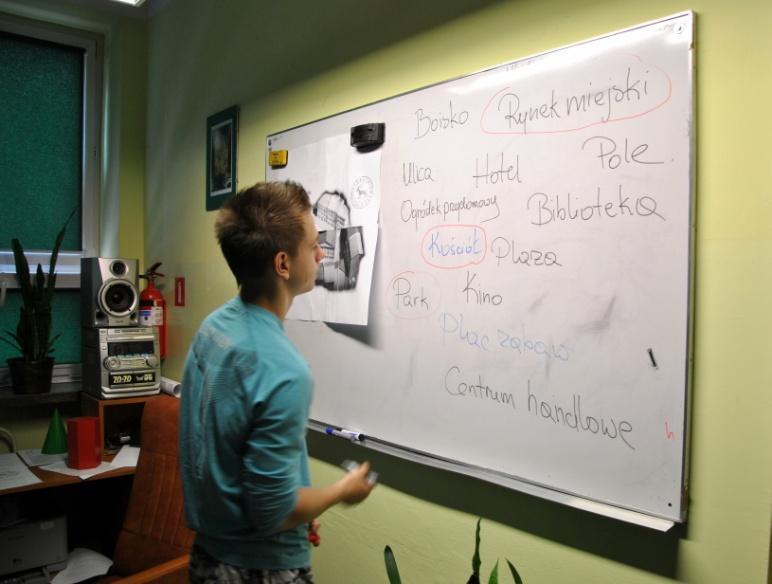 Boisko Rynek miejski
Ulica Hotel Pole
Ogródek przydomowy Biblioteka
Kościół Plaża
Park Kino
Plac zabaw
Centrum handlowe